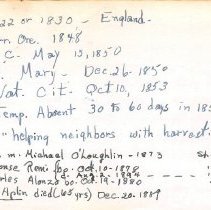 22 or 1830 - England.
rn Ore. 1848
C. May 15, 1850
Mary - Dec. 26 - 1850
Nat. Cit. Oct 10, 1853
Temp. Absent 30 to 60 days in 185
"helping neighbors with harvest
m. Michael O'Loughlin - 1873
onse Remi bo. Oct. 10 - 1878
d. Aug. 2 - 1894
rles Alonzo bo. Oct. 19 - 1880
Alplin died (65 yrs) Dec. 20 - 1889